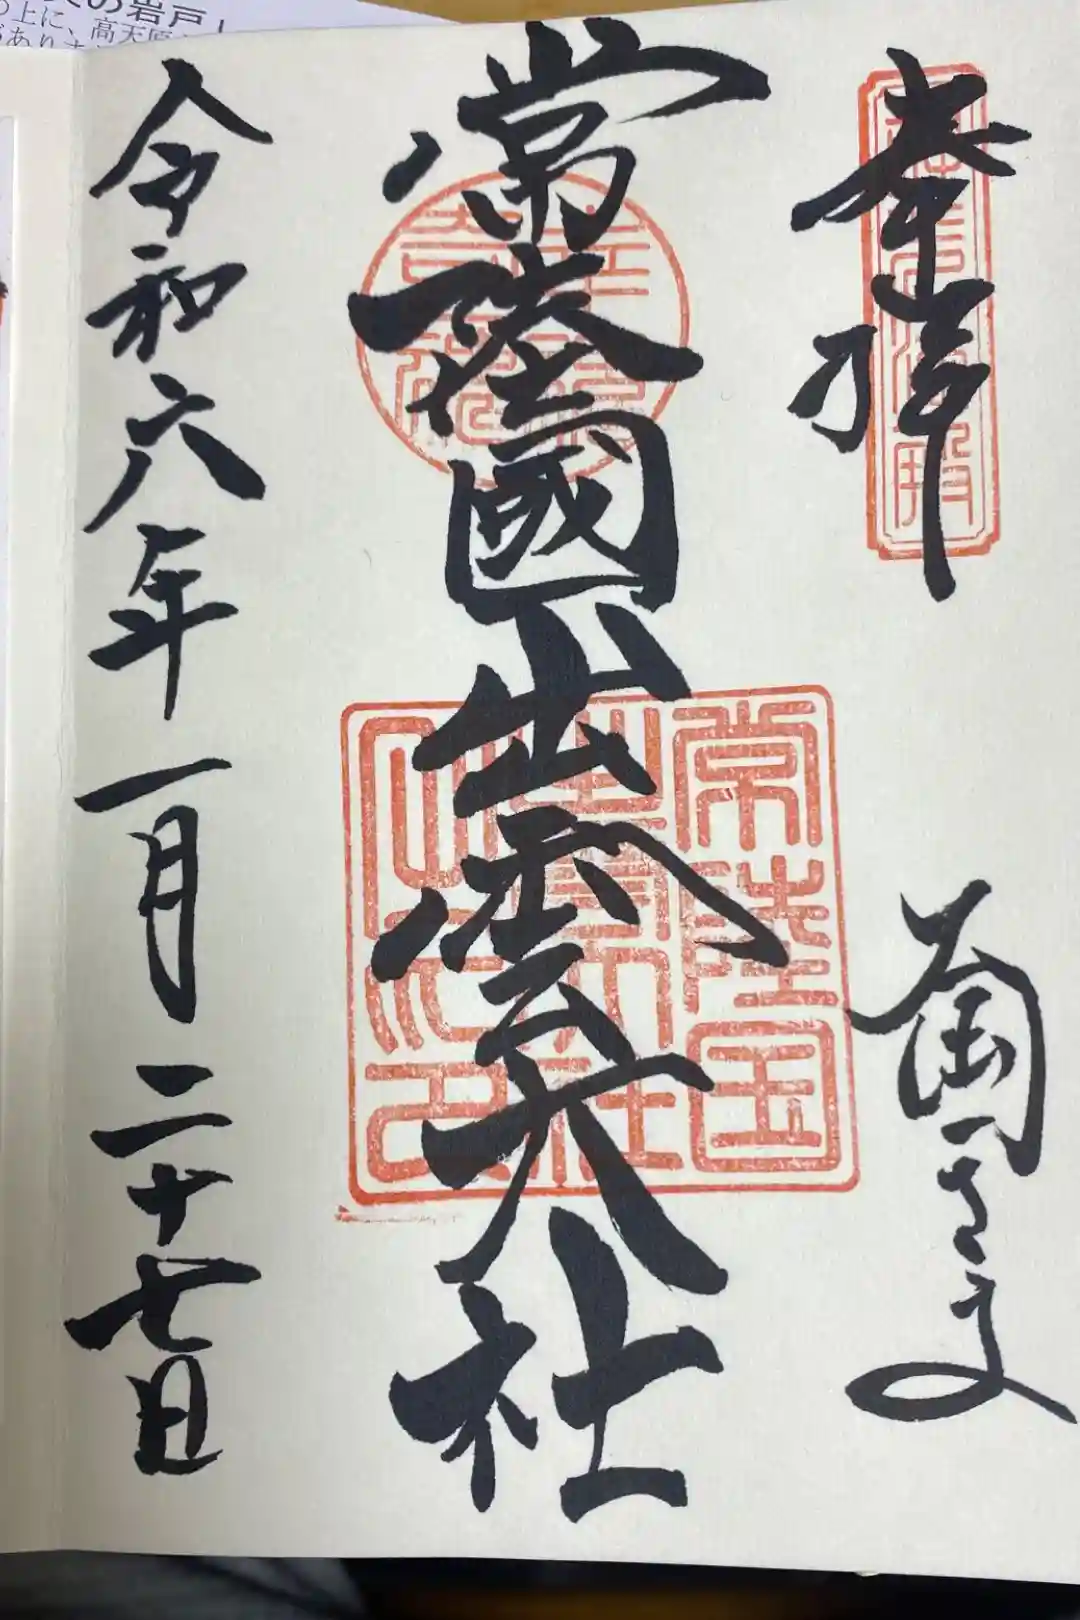 の岩戸」
の上に、高天原
奉拝
さま
常陸國出雲大社
常陸国
出雲大社
令和六年一月二十七日